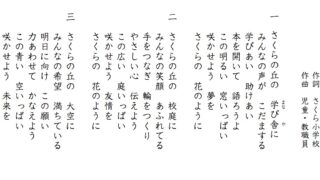 作詞 さくら小学校
作曲 児童・教職員
一
さくらの丘の 学び舎に
みんなの声が こだまする
学びあい 助けあい
本を開いて 語ろうよ
この明るい 窓いっぱい
咲かせよう 夢を
さくらの 花のように
二
さくらの丘の 校庭に
みんなの笑顔 あふれてる
手をつなぎ 輪をつくり
やさしい心 伝えよう
この広い 庭いっぱい
咲かせよう 友情を
さくらの 花のように
三
さくらの丘の 大空に
みんなの希望 満ちている
明日に向け この願い
力あわせて かなえよう
この青い 空いっぱい
咲かせよう 未来を